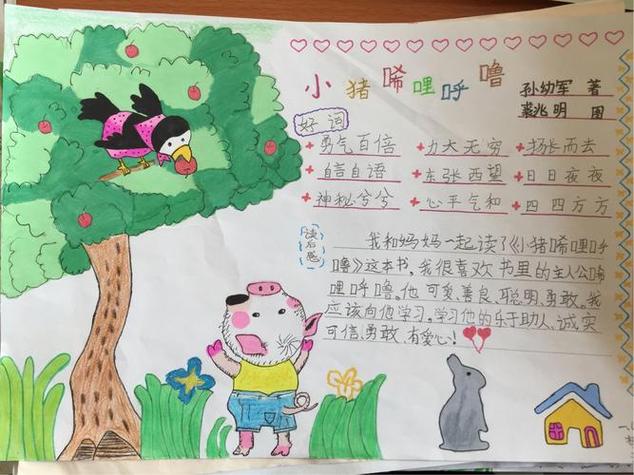 小猪唏哩呼噜
孙幼军 著
裘兆明 图
好词
勇气百倍 力大无穷 扬张而去
自言自语 东张西望 日日夜夜
神秘兮兮 心平气和 四四方方
读后感
我和妈妈一起读了《小猪唏哩呼
噜》这本书，我很喜欢书里的主人公唏
哩呼噜。他可爱、善良、聪明、勇敢。我
应该向他学习。学习他的乐于助人、诚实
可信、勇敢、有爱心！